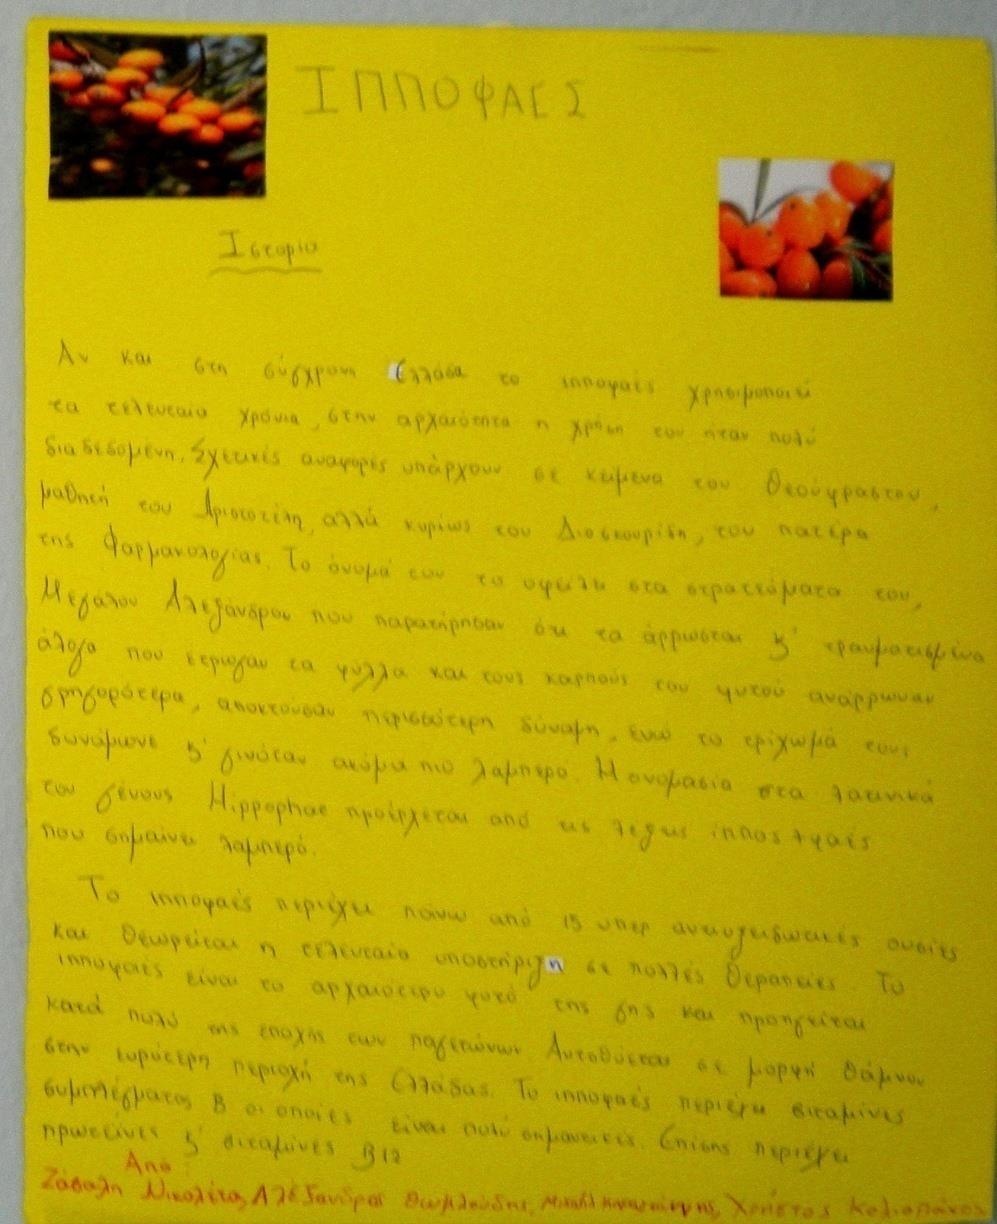 ΙΠΠΟΦΑΕΣ
Ιστορία
Αν και στη σύγχρονη Ελλάδα το ιπποφαές χρησιμοποιεί
τα τελευταία χρόνια, στην αρχαιότητα η χρήση του ήταν πολύ
διαδεδομένη. Σχετικές αναφορές υπάρχουν σε κείμενα του Θεόφραστου,
μαθητή του Αριστοτέλη, αλλά κυρίως του Διοσκουρίδη, του πατέρα
της Φαρμακολογίας. Το όνομά του το οφείλει στα στρατεύματα του,
Μεγάλου Αλεξάνδρου που παρατήρησαν ότι τα άρρωστα ϗ' τραυματισμένα
άλογα που έτρωγαν τα φύλλα και τους καρπούς του φυτού ανάρρωναν
γρηγορότερα, αποκτούσαν περισσότερη δύναμη, ενώ το τρίχωμά τους
δυνάμωνε ϗ' γινόταν ακόμα πιο λαμπερό. Η ονομασία στα λατινικά
του γένους Hippophae προέρχεται από τις λέξεις ίππος + φαές
που σημαίνει λαμπερό.
Το ιπποφαές περιέχει πάνω από 15 υπερ αντιοξειδωτικές ουσίες
και θεωρείται η τελευταία υποστήριξη σε πολλές θεραπείες. Το
ιπποφαές είναι το αρχαιότερο φυτό της γης και προηγείται
κατά πολύ της εποχής των παγετώνων. Αυτοφύεται σε μορφή θάμνου
στην ευρύτερη περιοχή της Ελλάδας. Το ιπποφαές περιέχει βιταμίνες
συμπλέγματος Β οι οποίες είναι πολύ σημαντικές. Επίσης περιέχει
πρωτεΐνες ϗ' βιταμίνες Β12
Από:
Ζάβαλη Νικολέτα, Αλέξανδρος Θωμλούδης, Μιχαήλ, Χρήστος Κολιοπάνος